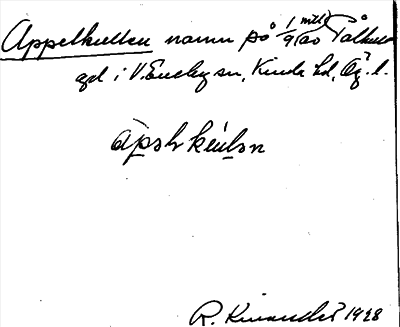 Appelkullen namn på 1/9 mtl Tålhult
gd i V. Eneby sn, Kinda hd, Ög. l.
R. Kinander 1928